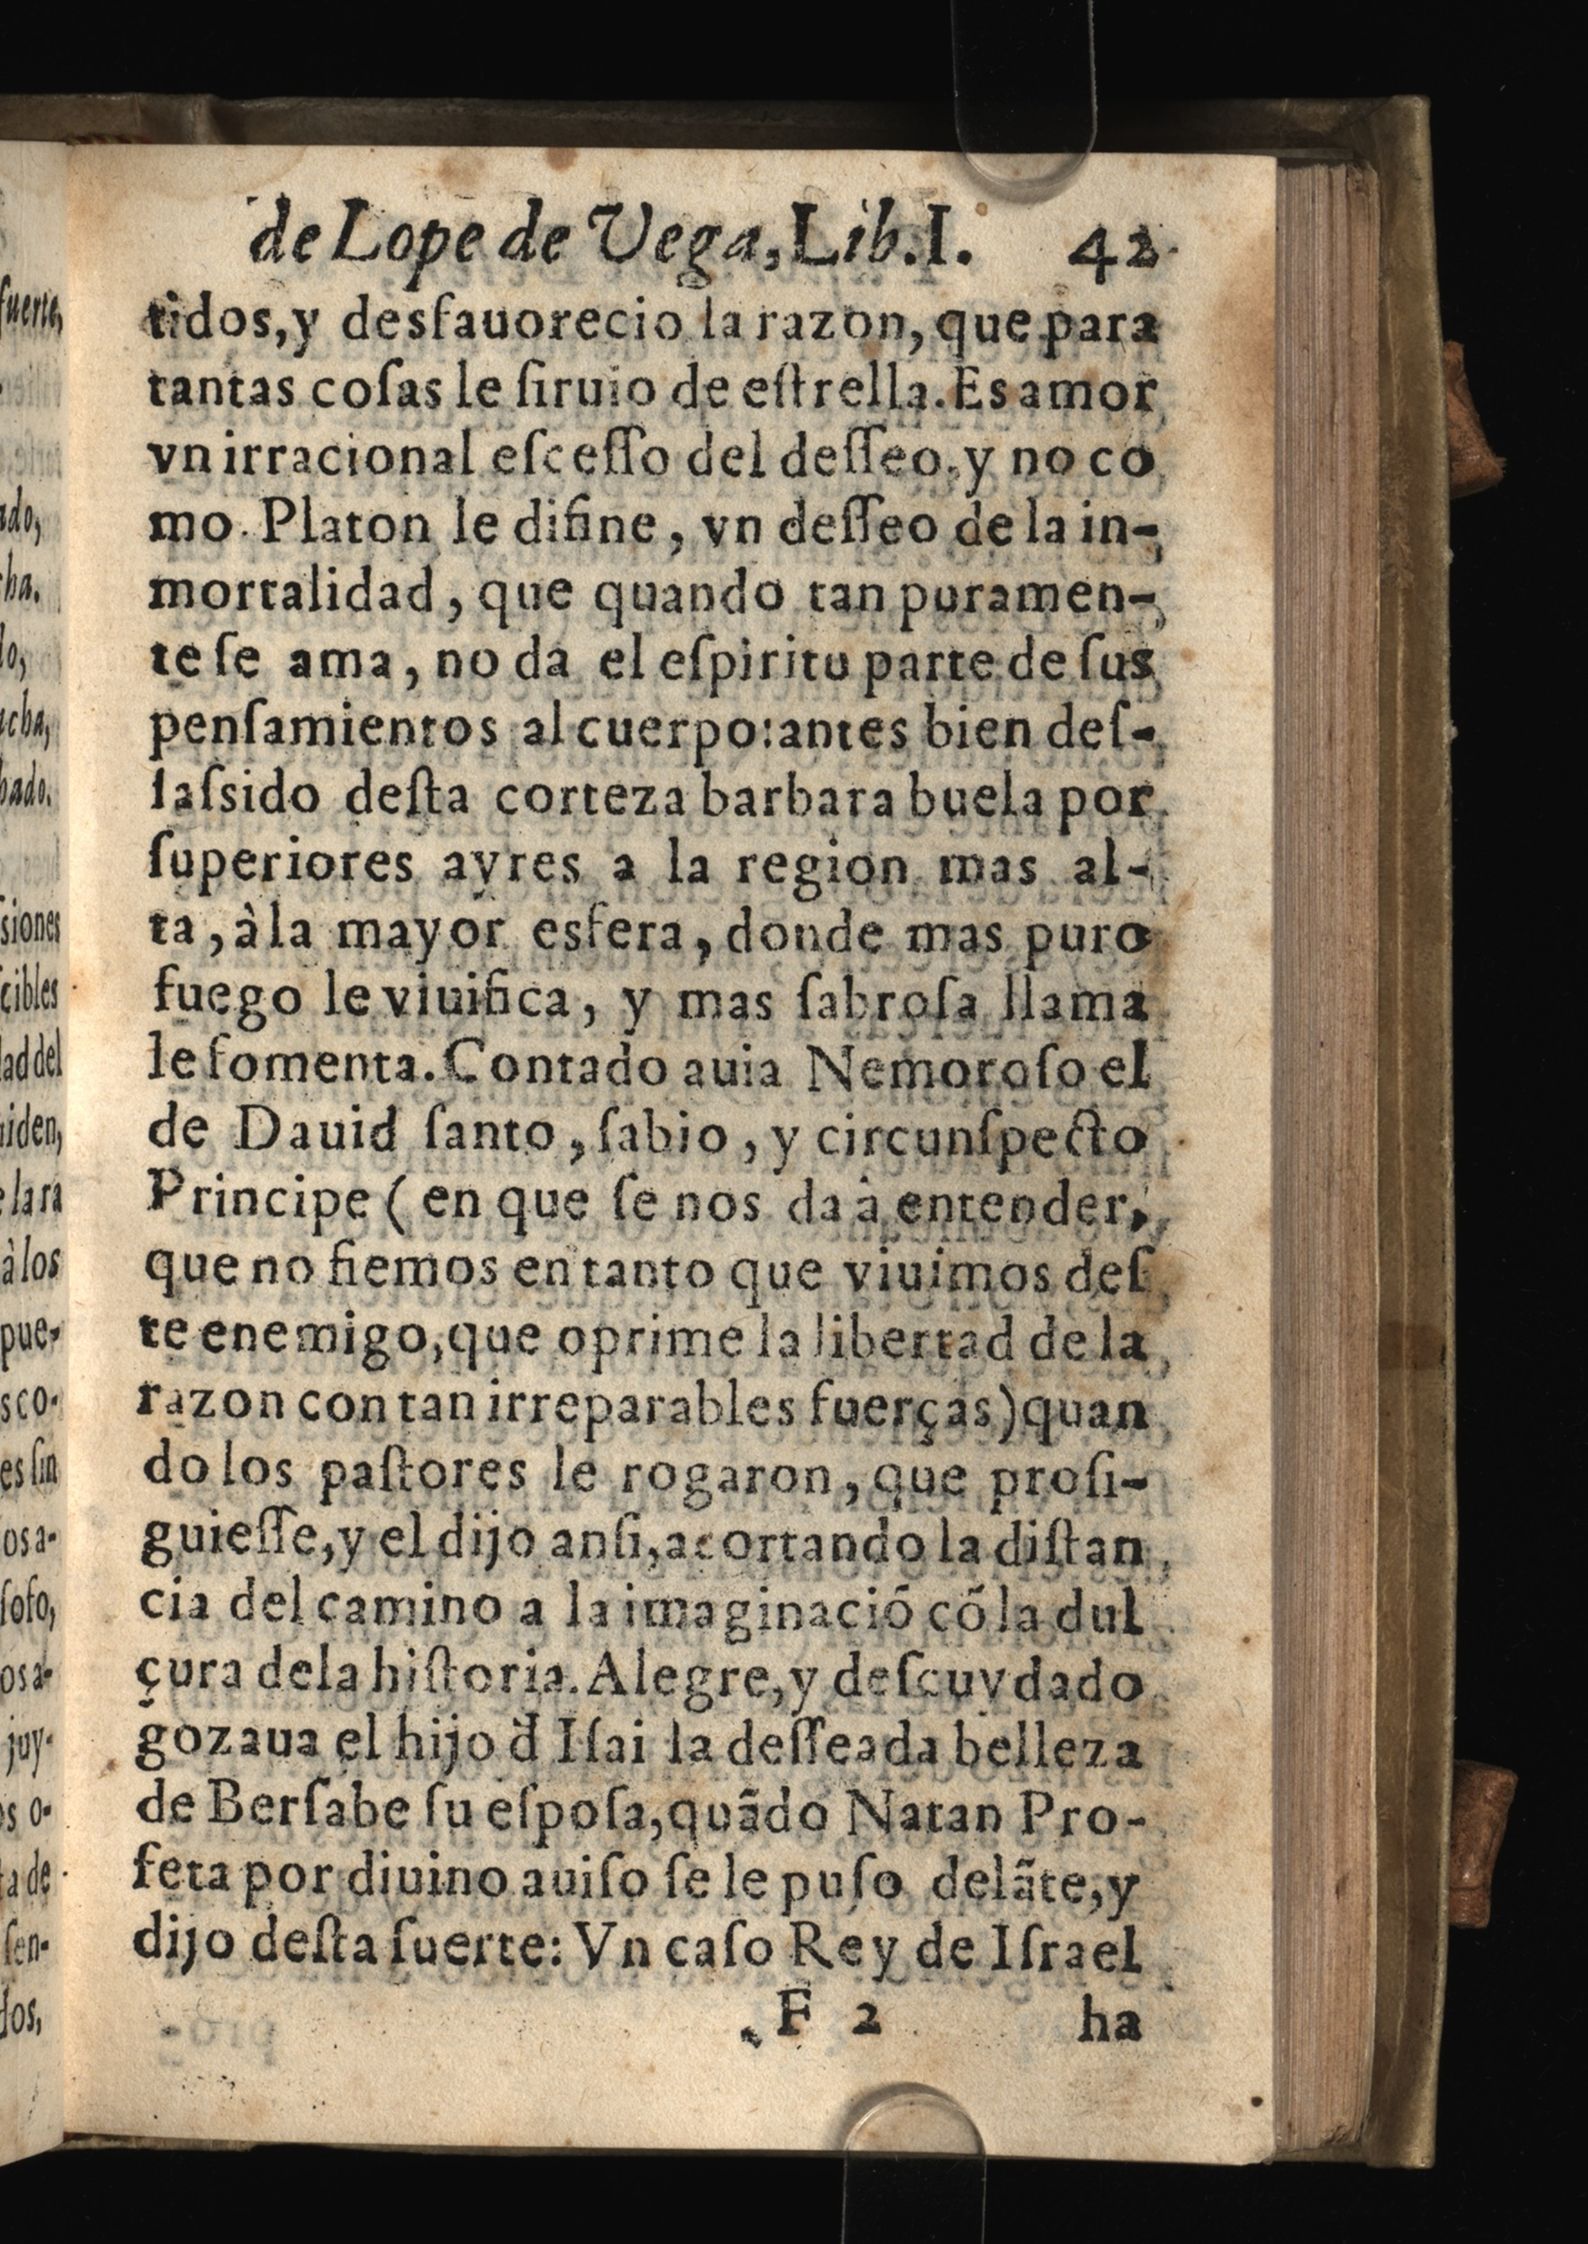 de Lope de Vega, Lib. I. 42
tidos, y desfauorecio la razon, que para
tantas coſas le ſiruio de eſtrella. Es amor
vn irracional eſceſſo del deſſeo, y no co
mo Platon le difine, vn deſſeo de la in-
mortalidad, que quando tan puramen-
te ſe ama, no da el eſpiritu parte de ſus
penſamientos al cuerpo: antes bien deſ-
laſsido deſta corteza barbara buela por
ſuperiores ayres a la region mas al-
ta, à la mayor esfera, donde mas puro
fuego le viuifica, y mas ſabroſa llama
le fomenta. Contado auia Nemoroſo el
de Dauid ſanto, ſabio, y circunſpecto
Principe (en que ſe nos da à entender,
que no fiemos en tanto que viuimos deſ
te enemigo, que oprime la libertad de la
razon con tan irreparables fuerças) quan
do los paſtores le rogaron, que proſi-
guieſſe, y el dijo anſi, acortando la diſtan
cia del camino a la imaginaciõ cõ la dul
çura de la hiſtoria. Alegre, y deſcuydado
gozaua el hijo d̃ Iſai la deſſeada belleza
de Berſabe ſu eſpoſa, quãdo Natan Pro-
feta por diuino auiſo ſe le puſo delãte, y
dijo deſta ſuerte: Vn caſo Rey de Iſrael
F 2 ha